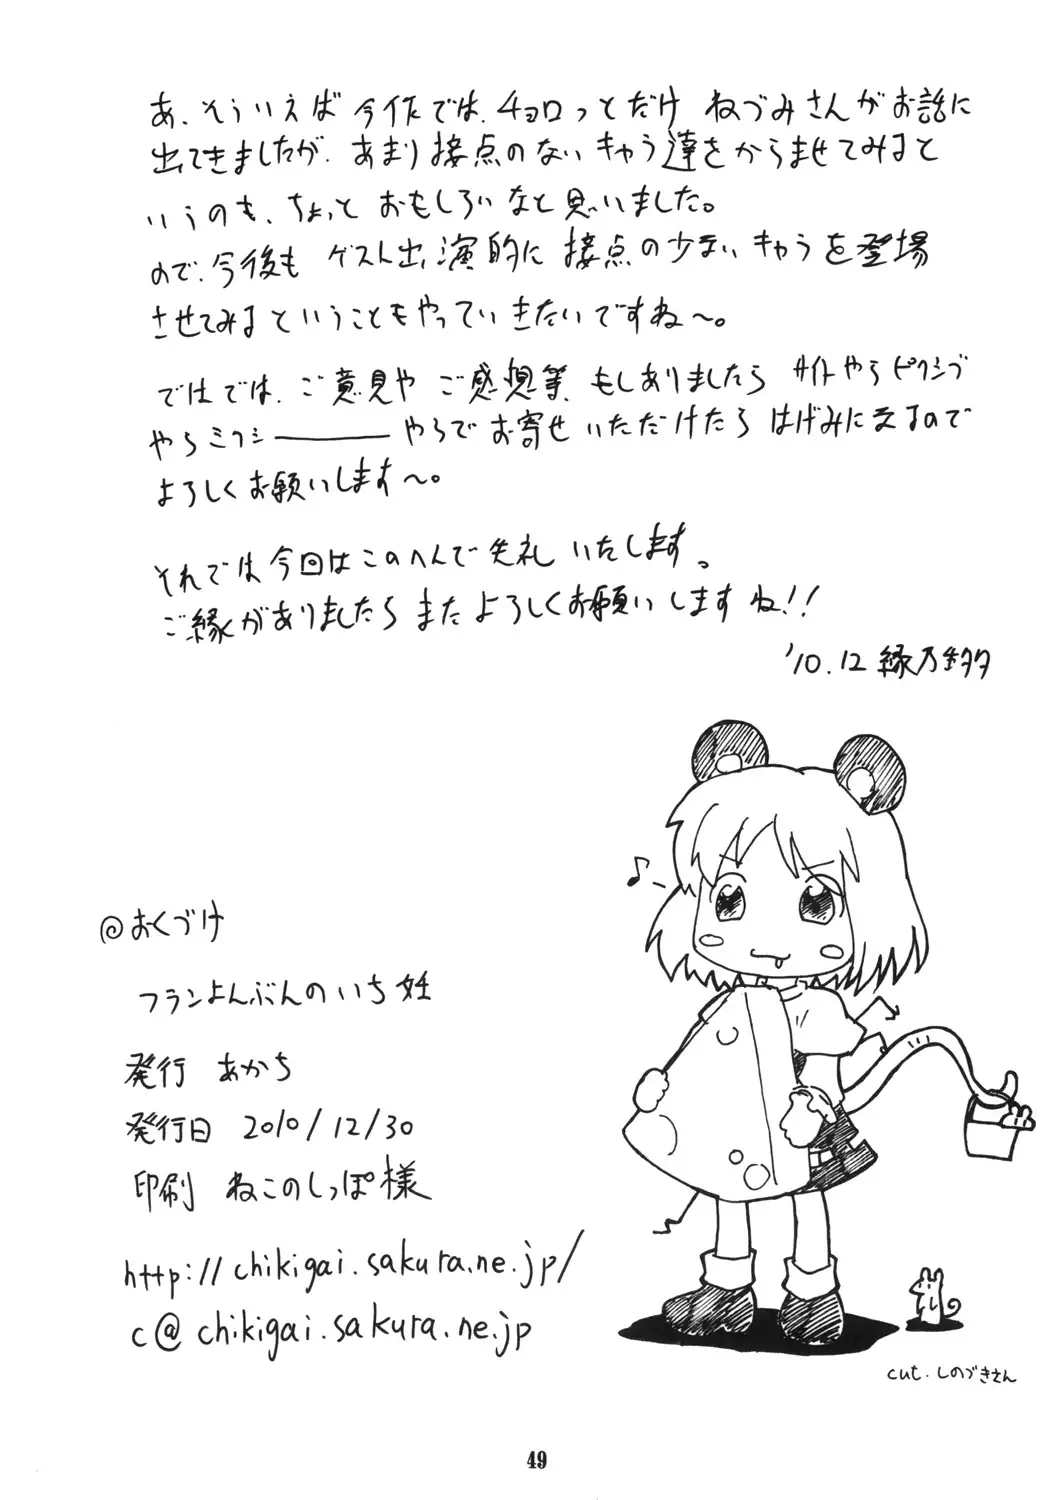 あ、そういえば今作では、チョロっとだけ ねづみさんがお話に
出てきましたが、あまり接点のないキャラ達をからませてみると
いうのも、ちょっと おもしろいなと思いました。
ので、今後も ゲスト出演的に 接点の少ないキャラを登場
させてみるということもやっていきたいですね～。
ではでは、ご意見や ご感想等、もしありましたら サイトやらピクシブ
やらミクシ―――やらでお寄せいただけたら はげみになるので
よろしくお願いします～。
それでは今回はこのへんで失礼いたします。
ご縁がありましたら またよろしくお願いしますね!!
'10.12 縁乃
@おくづけ
フランよんぶんのいち妊
発行 あかち
発行日 2010/12/30
印刷 ねこのしっぽ様
http://chikigai.sakura.ne.jp/
c@chikigai.sakura.ne.jp
cut.しのづきさん
49